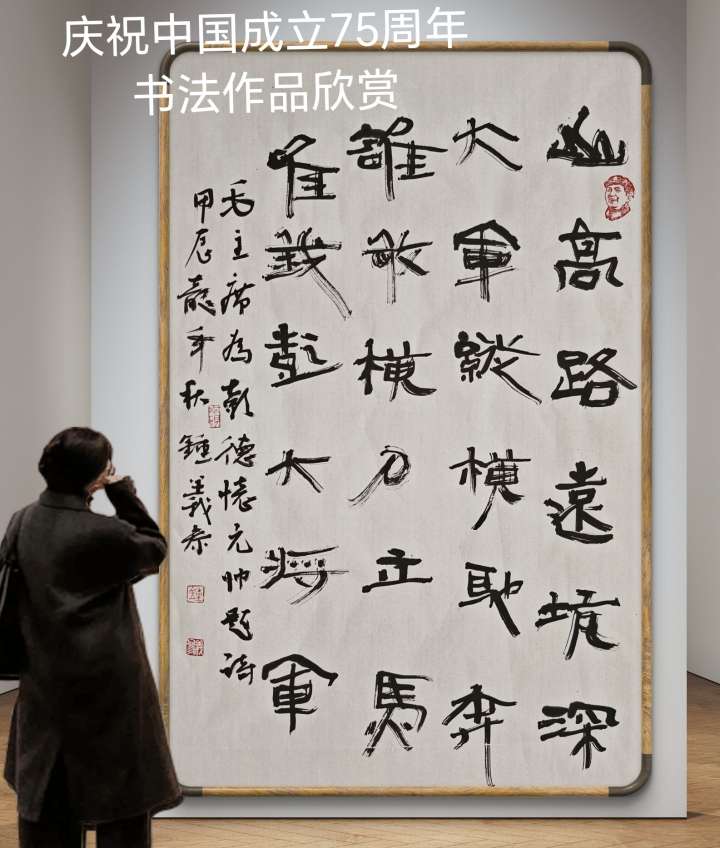 庆祝中国成立75周年
书法作品欣赏
山高路遠坑深
大軍縱橫馳奔
誰敢橫刀立馬
唯我彭大將軍
毛主席為彭德懷元帅题詩
甲辰龍年秋鍾義泰